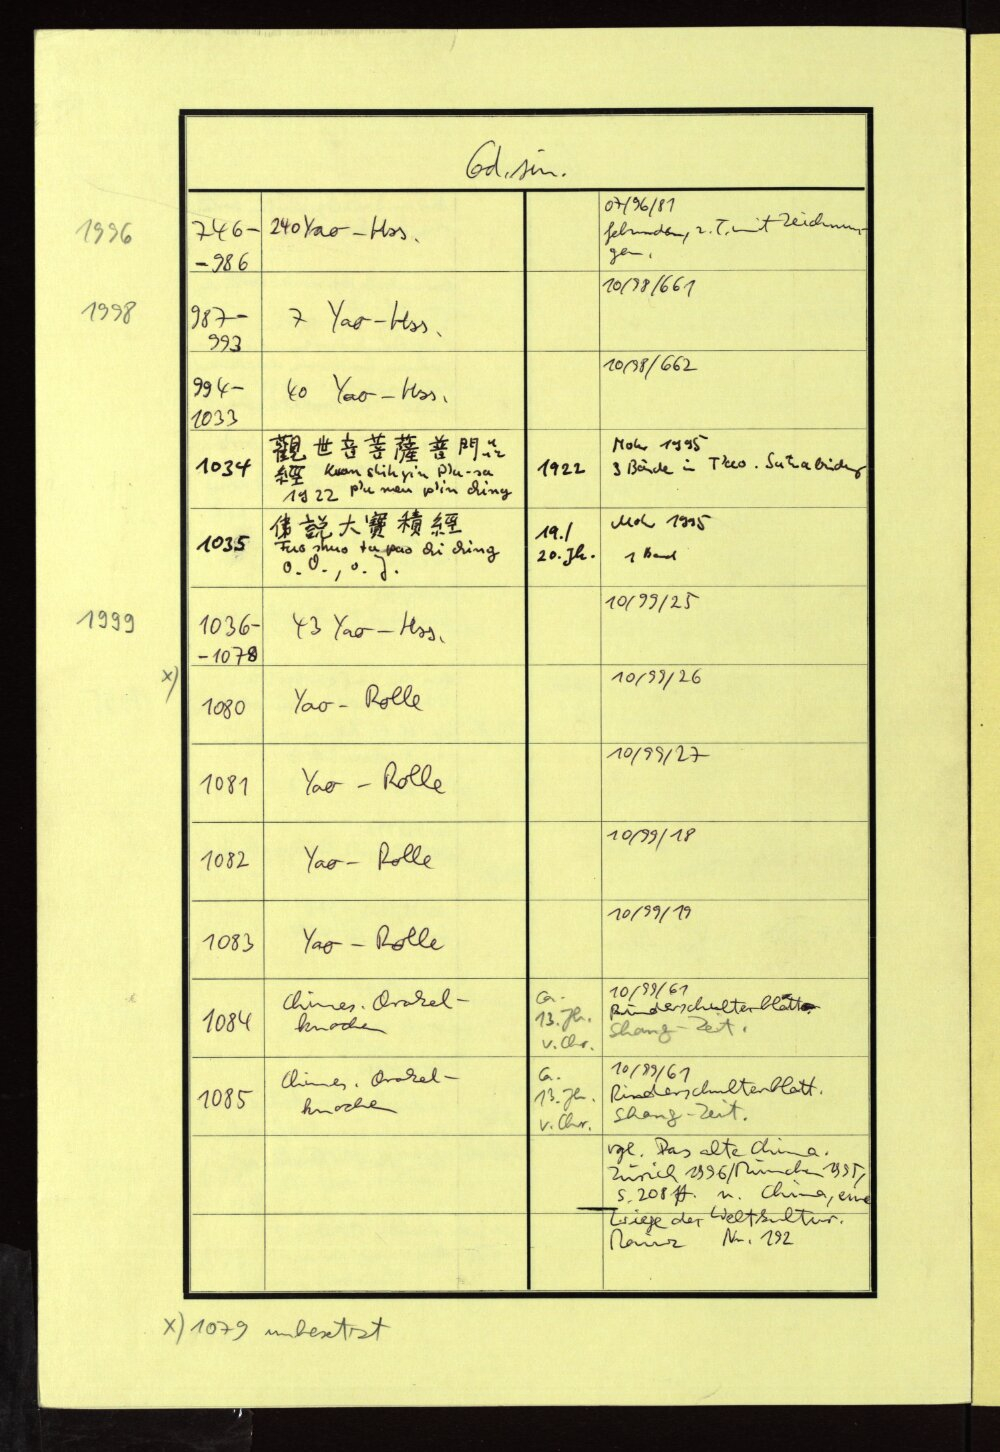 Cod. sin.
1996
746-
-986
240 Yao-Hss.
07/96/81
gebunden, z. T. mit Zeichnun-
gen.
1998
987-
993
7 Yao-Hss.
10/98/661
994-
1033
40 Yao-Hss.
10/98/662
1034
觀世音菩薩普門品
經 Kuan shih yin P'u-sa
1922 p'u men p'in ching
1922
Mohr 1995
3 Bände in Trad. Sutrabindung
1035
佛說大寶積經
Fuo shuo ta pao chi ching
o. O., o. J.
19./
20. Jh.
Mohr 1995
1 Band
1999
1036-
-1078
43 Yao-Hss.
10/99/25
x)
1080
Yao-Rolle
10/99/26
1081
Yao-Rolle
10/99/27
1082
Yao-Rolle
10/99/18
1083
Yao-Rolle
10/99/19
1084
Chines. Orakel-
knochen
ca.
13. Jh.
v. Chr.
10/99/61
Rinderschulterblatt.
Shang-Zeit.
1085
Chines. Orakel-
knochen
ca.
13. Jh.
v. Chr.
10/99/61
Rinderschulterblatt.
Shang-Zeit.
vgl. Das alte China.
Zürich 1996/München 1995,
S. 208 ff. u. China, eine
Wiege der Weltkultur.
Mainz Nr. 192
x) 1079 unbesetzt